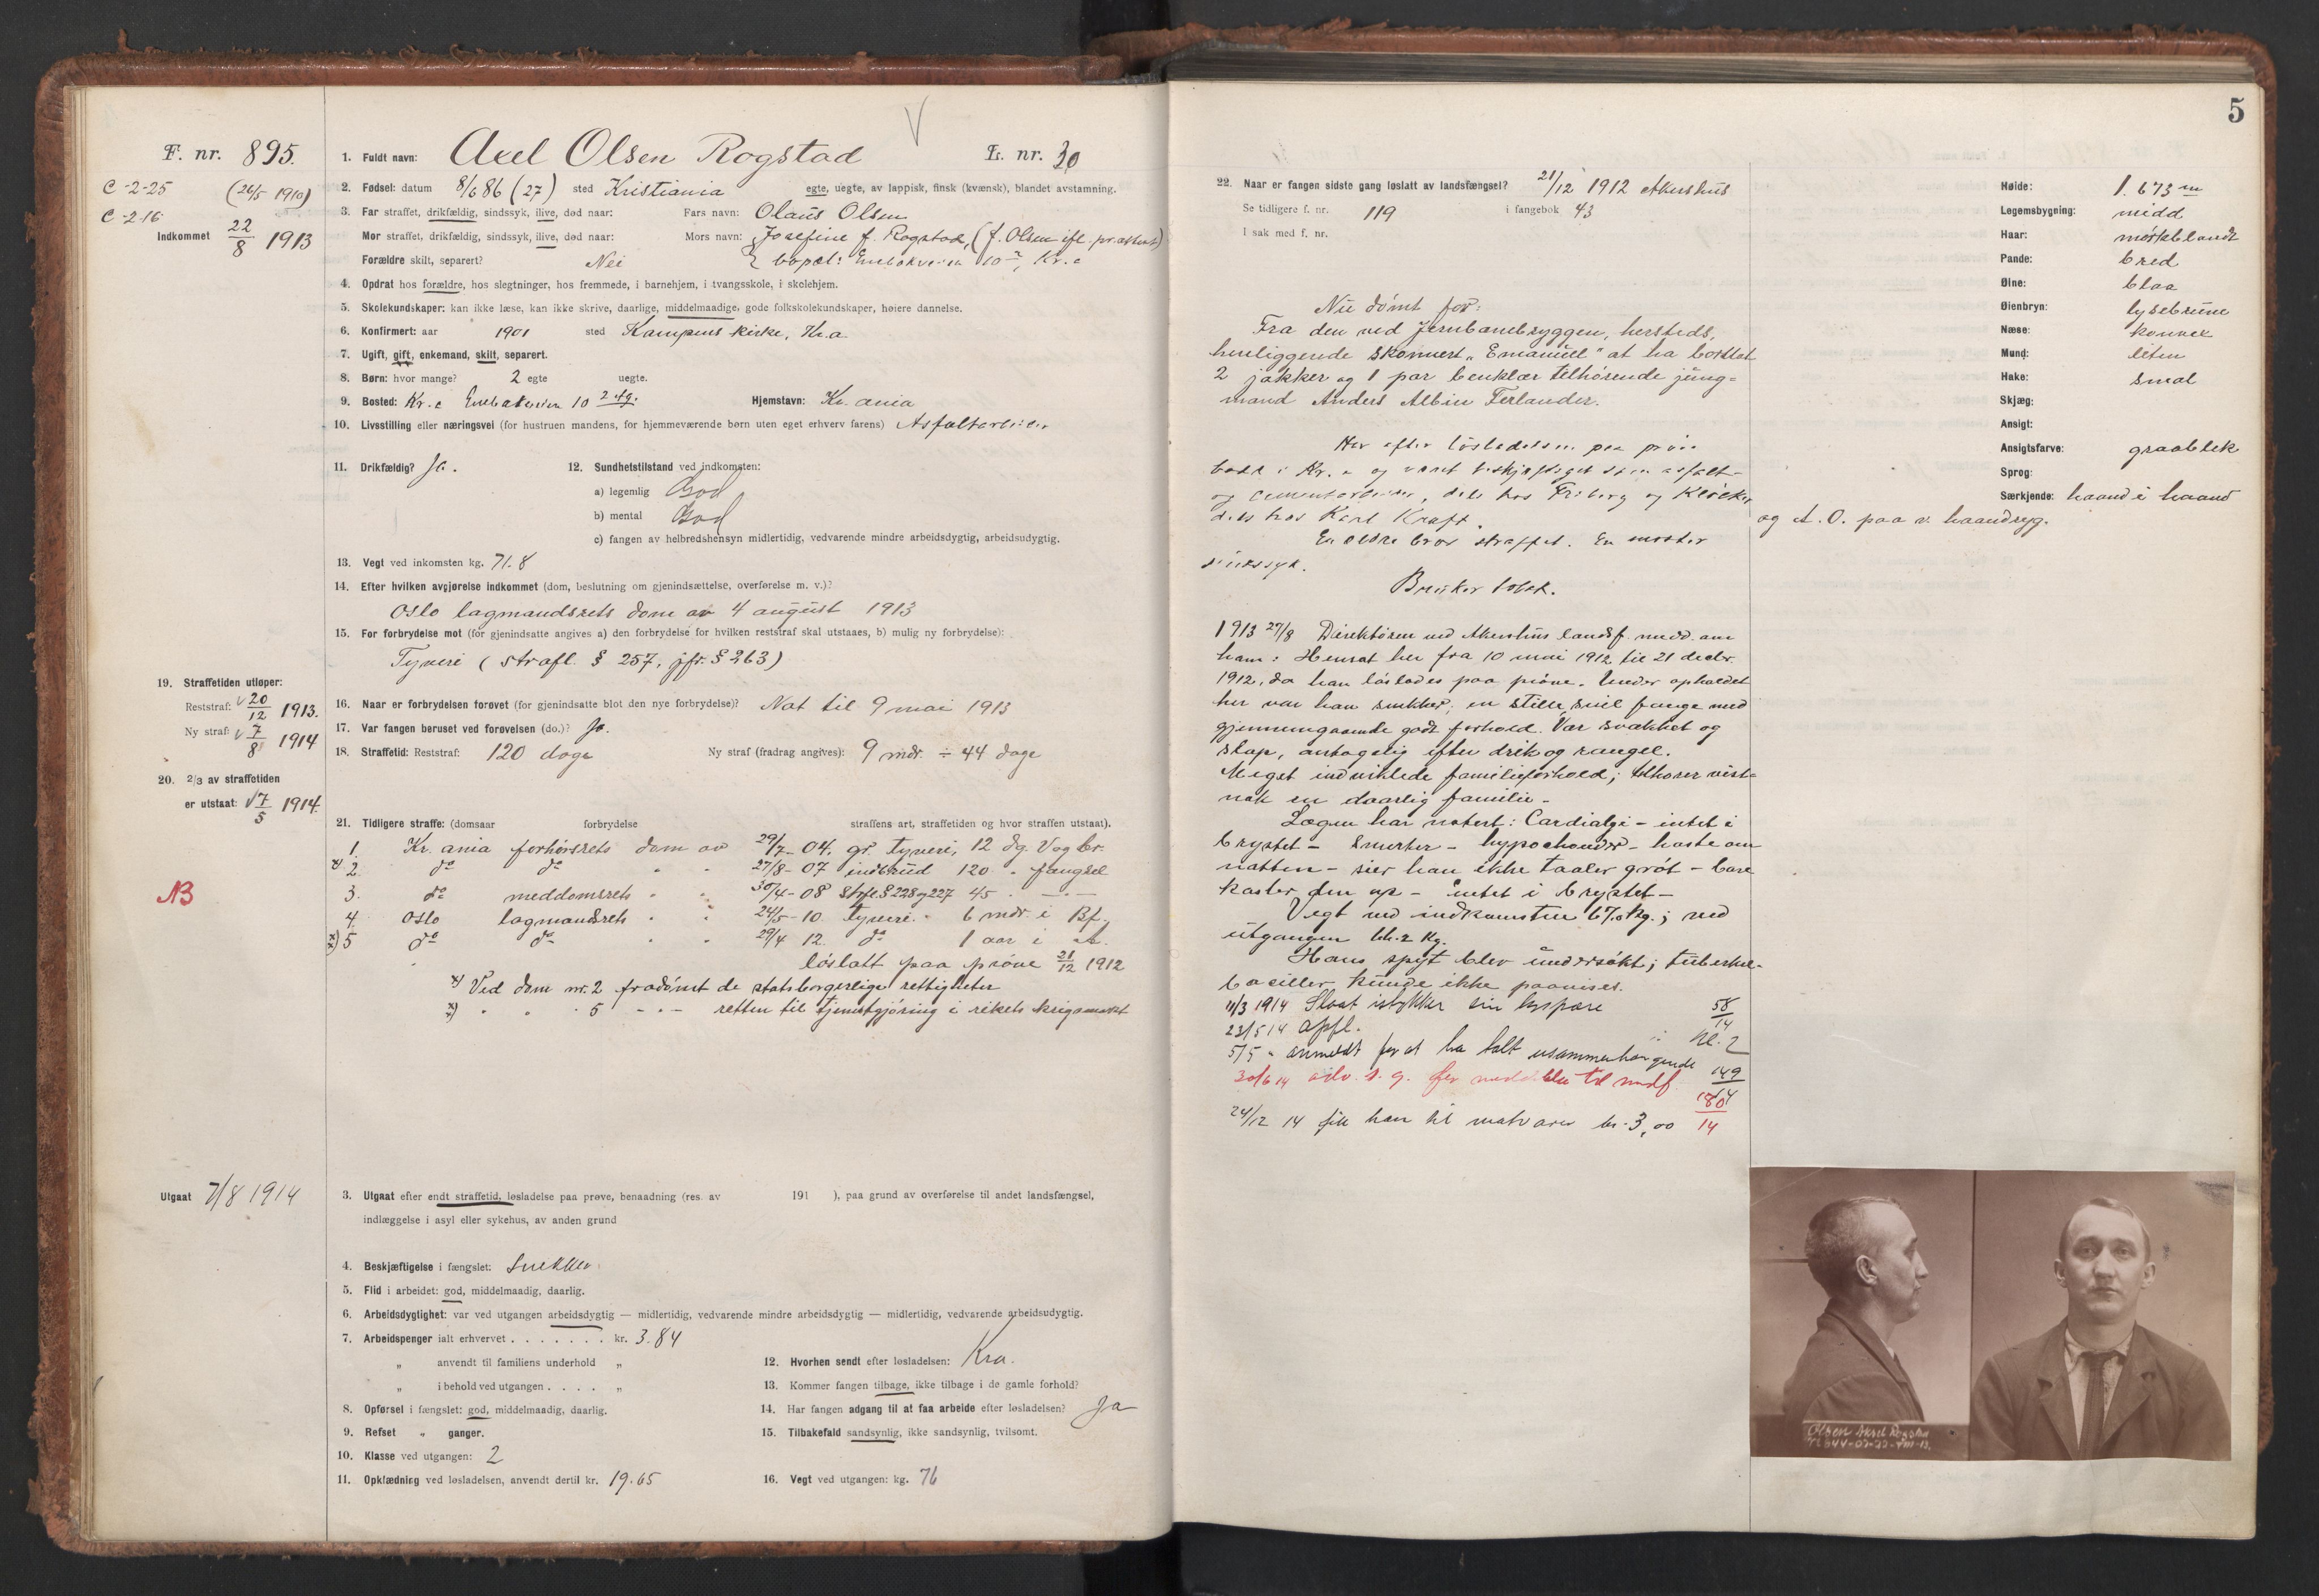 F. nr. 895.
1. Fuldt navn: Axel Olsen Rogstad L. nr. 30
C-2-25 (26/5 1910)
C-2-16
Indkommet 22/8 1913
2. Fødsel: datum 8/6 86 (27) sted Kristiania egte, uegte, av lappisk, finsk (kvænsk), blandet avstamning.
3. Far straffet, drikfældig, sindssyk, ilive, død naar: Fars navn: Olaus Olsen
Mor straffet, drikfældig, sindssyk, ilive, død naar: Mors navn: Josefine f. Rogstad, (f. Olsen ifl. pr. attest)
Forældre skilt, separert? Nei bopæl: Enebakveien 10 Kr.a
4. Opdrat hos forældre, hos slegtninger, hos fremmede, i barnehjem, i tvangsskole, i skolehjem.
5. Skolekundskaper: kan ikke læse, kan ikke skrive, daarlige, middelmaadige, gode folkskolekundskaper, høiere dannelse.
6. Konfirmert: aar 1901 sted Kampens kirke, Kr.a
7. Ugift, gift, enkemand, skilt, separert.
8. Børn: hvor mange? 2 egte uegte.
9. Bosted: Kr.a Enebakveien 10 2 etg. Hjemstavn: Kr.ania
10. Livsstilling eller næringsvei (for hustruen mandens, for hjemmeværende børn uten eget erhverv farens) Asfaltarbeider
11. Drikfældig? Ja. 12. Sundhetstilstand ved indkomsten:
a) legemlig God
b) mental God
c) fangen av helbredshensyn midlertidig, vedvarende mindre arbeidsdygtig, arbeidsudygtig.
13. Vegt ved inkomsten kg. 71.8
14. Efter hvilken avgjørelse indkommet (dom, beslutning om gjenindsættelse, overførelse m. v.)?
Oslo lagmandsrets dom av 4 august 1913
15. For forbrydelse mot (for gjenindsatte angives a) den forbrydelse for hvilken reststraf skal utstaaes, b) mulig ny forbrydelse):
Tyveri (strafl. § 257, jfr. § 263)
19. Straffetiden utløper:
Reststraf: 20/12 1913.
Ny straf: 7/8 1914
16. Naar er forbrydelsen forøvet (for gjenindsatte blot den nye forbrydelse)? Nat til 9 mai 1913
17. Var fangen beruset ved forøvelsen (do.)? Ja.
18. Straffetid: Reststraf: 120 dage Ny straf (fradrag angives): 9 mdr. ÷ 44 dage
20. 2/3 av straffetiden
er utstaat: 7/5 1914.
21. Tidligere straffe: (domsaar forbrydelse straffens art, straffetiden og hvor straffen utstaat).
1. Kr.ania forhørsrets dom av 29/7-04. gr. tyveri, 12 dg. V og br.
x) 2. do do " " 27/8-07 indbrud 120 " fængsel
NB
3. do meddomsrets " " 30/4-08 Strfl. § 228 og 227 45 " —
4. Oslo lagmandsrets " " 24/5-10. tyveri " 6 mdr. i Bf.
xx) 5 do do " " 29/4 12. do 1 aar i A.
løslatt paa prøve 21/12 1912
x) Ved dom nr. 2 fradømt de statsborgerlige rettigheter
xx) " " " 5 — " — retten til tjenstgjøring i rikets krigsmakt
Utgaat 7/8 1914
3. Utgaat efter endt straffetid, løsladelse paa prøve, benaadning (res. av 191 ), paa grund av overførelse til andet landsfængsel,
indlæggelse i asyl eller sykehus, av anden grund
4. Beskjæftigelse i fængslet: Snekker
5. Flid i arbeidet: god, middelmaadig, daarlig.
6. Arbeidsdygtighet: var ved utgangen arbeidsdygtig — midlertidig, vedvarende mindre arbeidsdygtig — midlertidig, vedvarende arbeidsudygtig.
7. Arbeidspenger ialt erhvervet . . . . . . . kr. 3.84
„ anvendt til familiens underhold „
„ i behold ved utgangen . . . . „
8. Opførsel i fængslet: god, middelmaadig, daarlig.
9. Refset „ ganger.
10. Klasse ved utgangen: 2
11. Opklædning ved løsladelsen, anvendt dertil kr. 19.65
12. Hvorhen sendt efter løsladelsen: Kra.
13. Kommer fangen tilbage, ikke tilbage i de gamle forhold?
14. Har fangen adgang til at faa arbeide efter løsladelsen? Ja
15. Tilbakefald sandsynlig, ikke sandsynlig, tvilsomt.
16. Vegt ved utgangen: kg. 76
5
22. Naar er fangen sidste gang løslatt av landsfængsel? 21/12 1912 Akershus
Se tidligere f. nr. 119 i fangebok 43
I sak med f. nr.
Nu dømt for:
Fra den ved Jernbanebryggen, hersteds,
henliggende skonnert „Emanuel" at ha borttat
2 jakker og 1 par benklær tilhørende jung=
mand Anders Albin Ferlander.
Har efter løsladelsen paa prøve
bodd i Kr.a og været beskjæftiget som asfalt-
og cementarbeider, dels hos Friberg og Klöcker
dels hos Karl Kraft.
En ældre bror straffet. En moster
sindssyk.
Bruker tobak.
1913 27/8 Direktøren ved Akershus landsf. medd. om
ham: Hensat her fra 10 mai 1912 til 21 decbr.
1912, da han løslodes paa prøve. Under opholdet
her var han snekker; en stille, snil fange med
gjennemgaaende godt forhold. Var svækket og
slap, antagelig efter drik og rangel.
Meget indviklede familieforhold; tilhører vist=
nok en daarlig familie.
Lægen har notert: Cardialgi - intet i
brystet - smerter - hypochonder - hoste om
natten - sier han ikke taaler grøt - bare
kaster den op - intet i brystet -
Vegt ved indkomsten 67.0 kg.; ved
utgangen 66.2 kg.
Hans spyt blev undersøkt; tuberkel-
baciller kunde ikke paavises.
11/3 1914 Slaat istykker sin lyspære 58/14
23/5 14 opfl. " kl. 2
5/5 " anmeldt for at ha talt usammenhængende 149/14
30/6 14 180/14
24/12 14 fik han til matvarer kr. 3,00
Høide: 1.673 m
Legemsbygning: midd
Haar: mørkblondt
Pande: bred
Øine: blaa
Øienbryn: lysebrune
Næse: konvex
Mund: liten
Hake: smal
Skjæg:
Ansigt:
Ansigtsfarve: graablek
Sprog:
Særkjende: haand i haand
og A. O. paa v. haandryg.
Olsen Aksel Rogstad